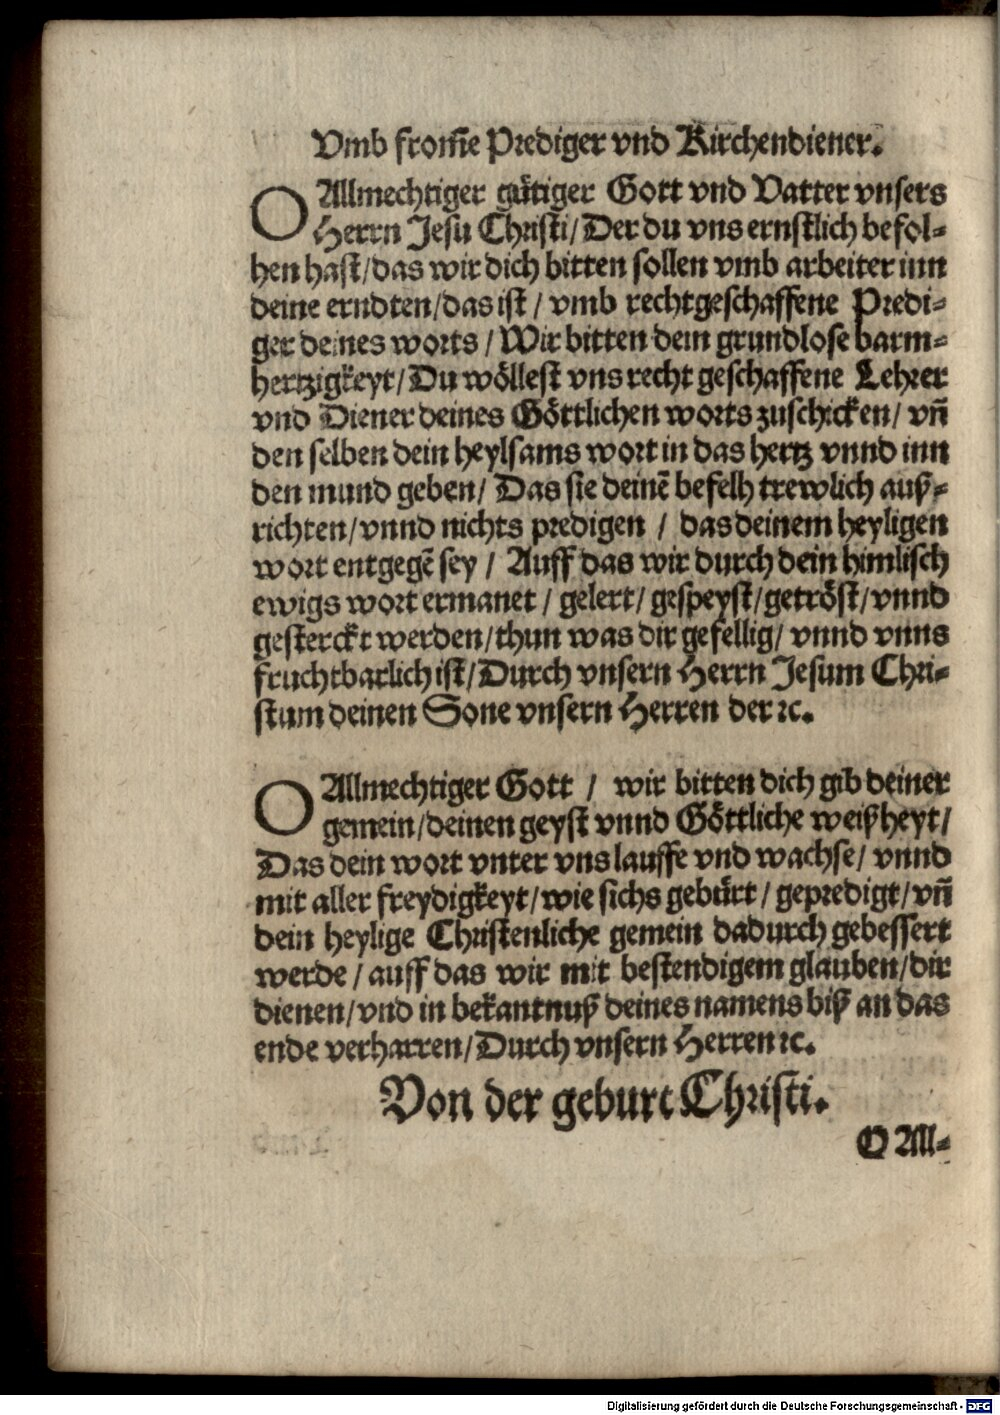 Vmb from̃e Prediger vnd Kirchendiener.
O Allmechtiger gütiger Gott vnd Vatter vnsers
Herrn Jesu Christi/Der du vns ernstlich befol-
hen hast/das wir dich bitten sollen vmb arbeiter inn
deine erndten/das ist / vmb rechtgeschaffene Predi-
ger deines worts / Wir bitten dein grundlose barm-
hertzigkeyt/Du wöllest vns recht geschaffene Lehrer
vnd Diener deines Göttlichen worts zuschicken/ vñ
den selben dein heylsams wort in das hertz vnnd inn
den mund geben/ Das sie deinẽ befelh trewlich auß-
richten/vnnd nichts predigen / das deinem heyligen
wort entgegẽ sey / Auff das wir durch dein himlisch
ewigs wort ermanet / gelert/ gespeyst/getröst/vnnd
gesterckt werden/thun was dir gefellig/ vnnd vnns
fruchtbarlich ist/Durch vnsern Herrn Jesum Chri-
stum deinen Sone vnsern Herren der ꝛc.
O Allmechtiger Gott / wir bitten dich gib deiner
gemein/deinen geyst vnnd Göttliche weißheyt/
Das dein wort vnter vns lauffe vnd wachse/ vnnd
mit aller freydigkeyt/wie sichs gebürt / gepredigt/vñ
dein heylige Christenliche gemein dadurch gebessert
werde / auff das wir mit bestendigem glauben/dir
dienen/vnd in bekantnuß deines namens biß an das
ende verharren/Durch vnsern Herren ꝛc.
Von der geburt Christi.
O All-
Digitalisierung gefördert durch die Deutsche Forschungsgemeinschaft - DFG